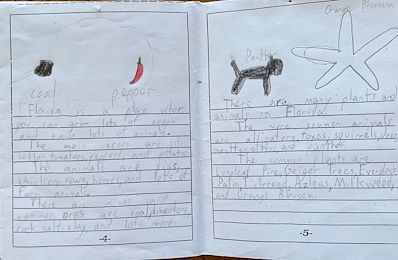 coal pepper
Florida is a place where
you can see lots of crops
and raise lots of animals.
The main crops are
cotton, tomatoes, peppers, and
The animals are pigs,
chicken, cows, horses, and lots of
farm animals.
There are mines and
common ores are coal, limestone,
rock salt, clay, and lots more.
-4-
Orange Blossom
Panther
There are many plants and
animals in Florida.
The more common animals
are alligators, foxes, squirrels,
otter, and panther.
The common plants are
Longleaf Pine, Geiger Trees, Everglade
Palm, Azleas, Milkwood,
and Orange Blossom.
-5-